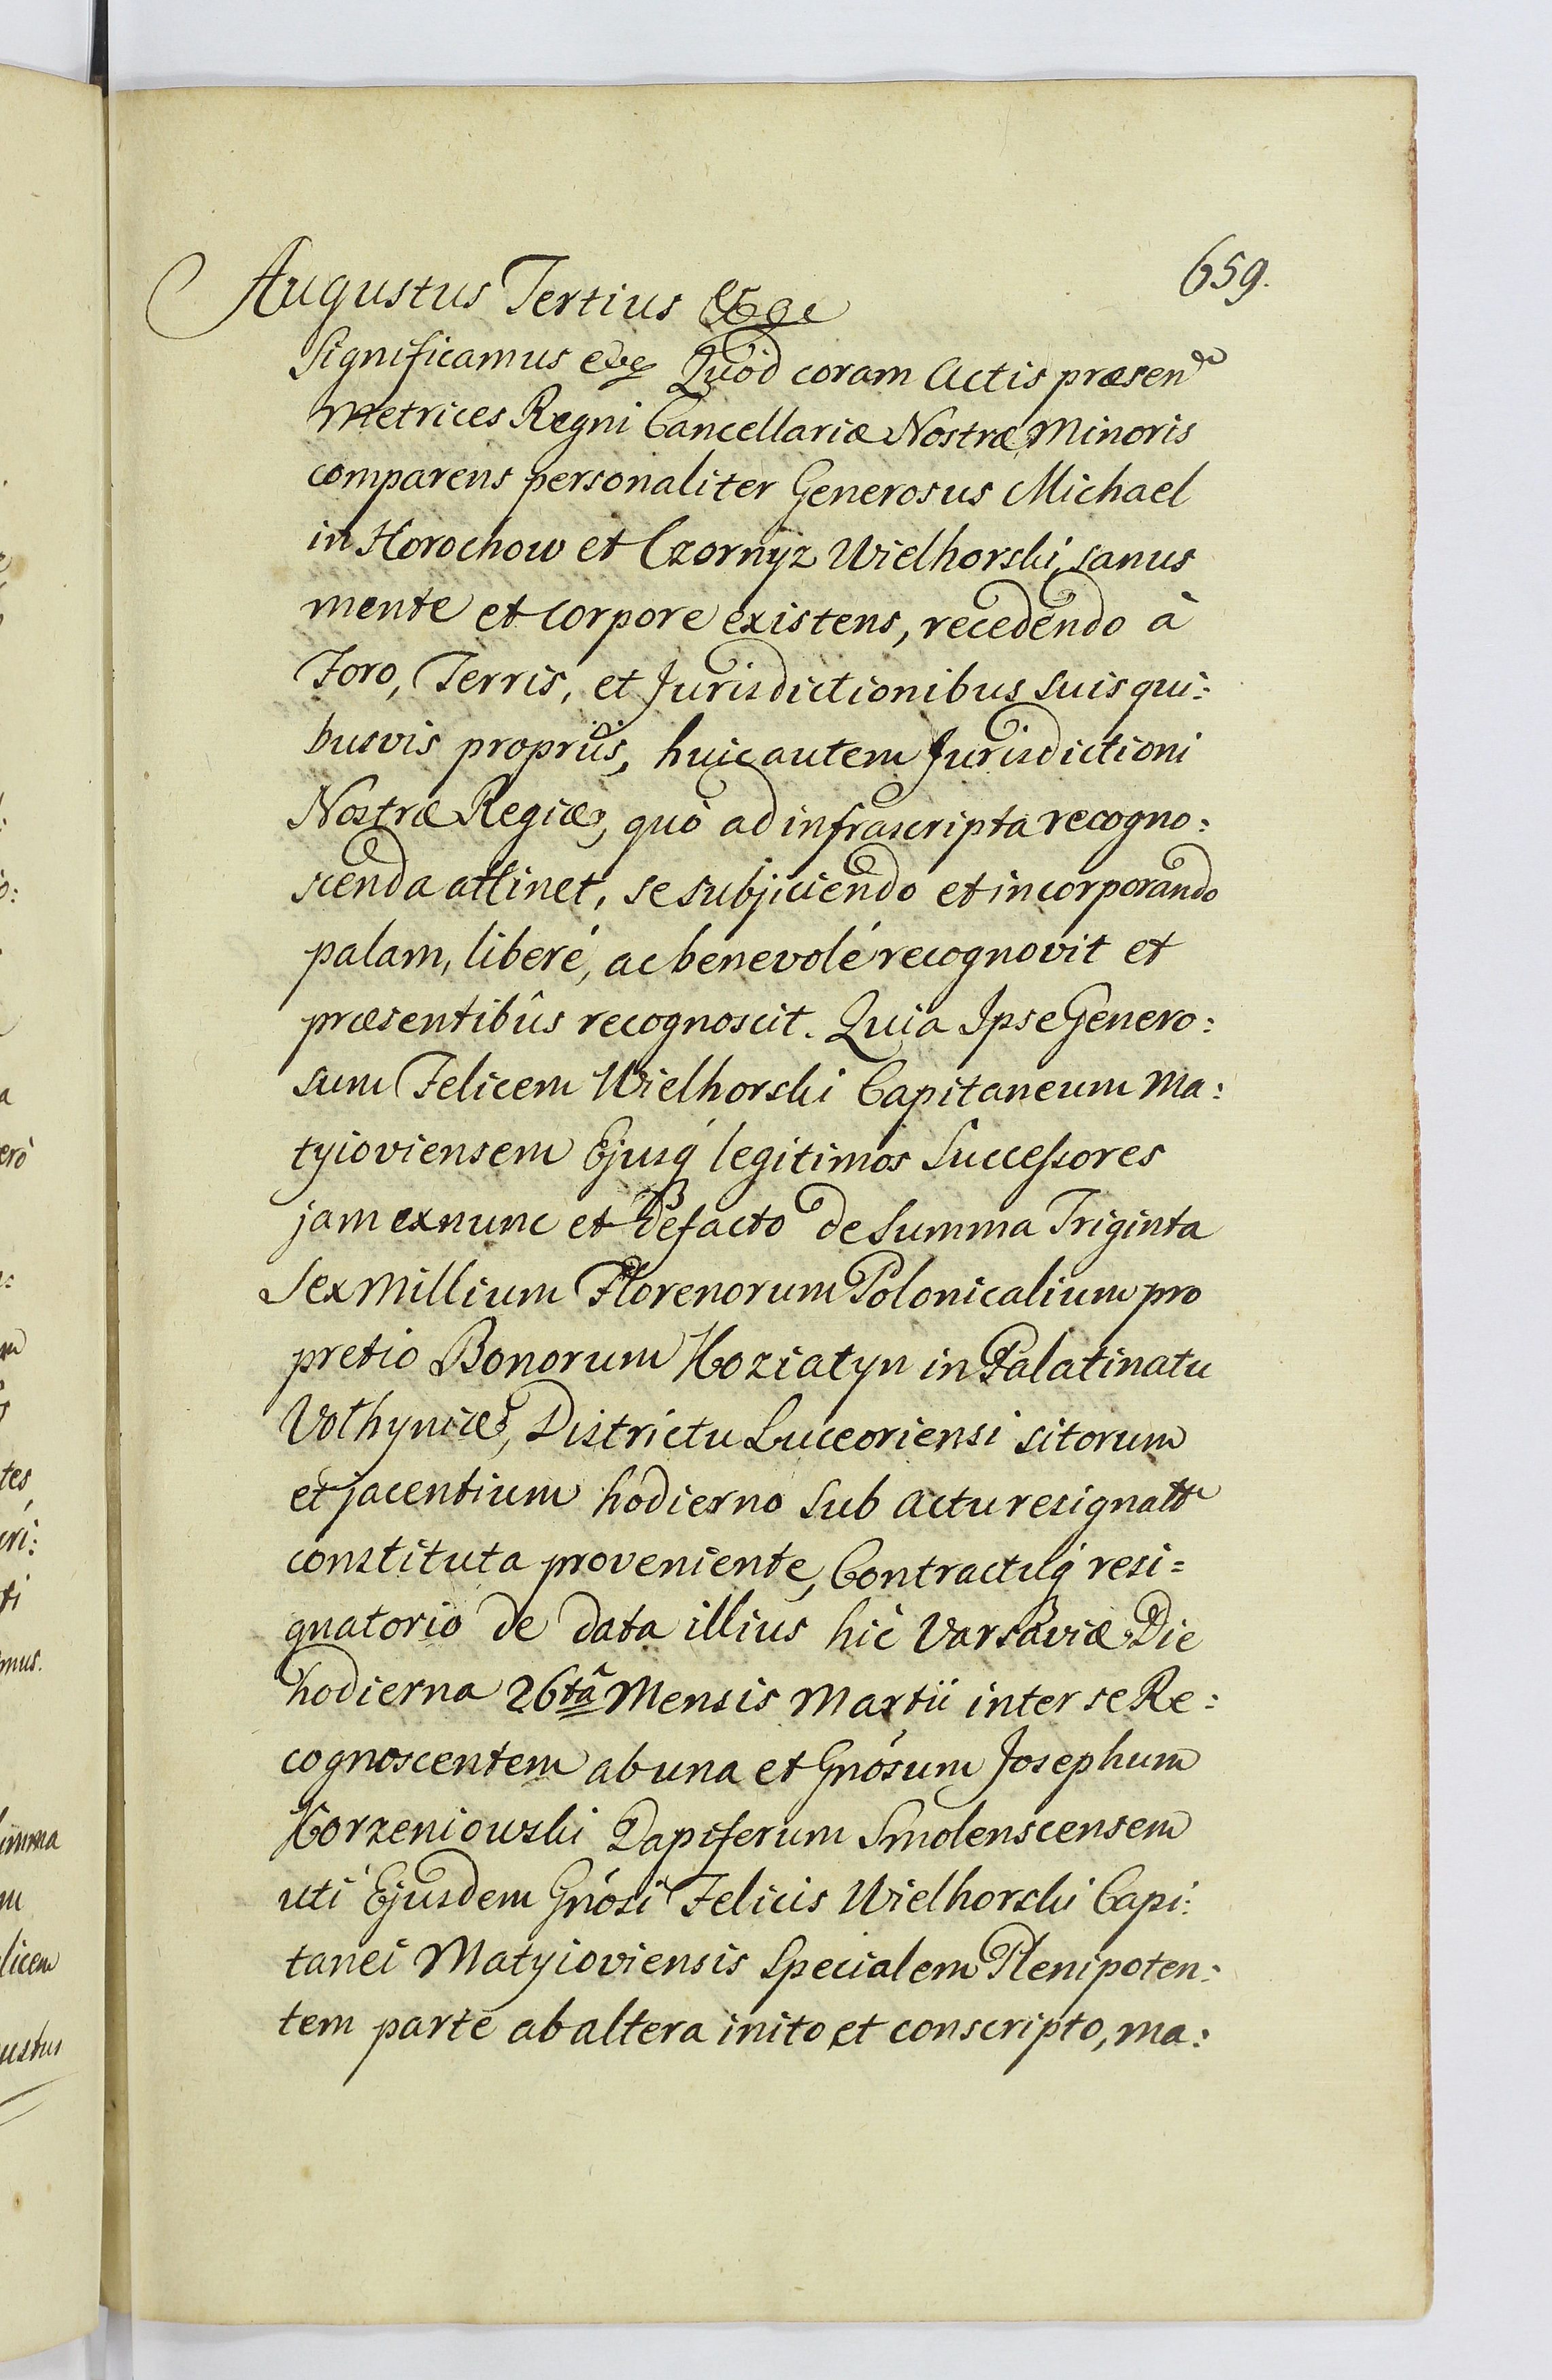 659.
Augustus Tertius &c
Significamus etc Quod coram Actis præsen
Metrices Regni Cancellariæ Nostræ Minoris
comparens personaliter Generosus Michael
in Horochow et Czornyz Wielhorski, sanus
mente et corpore existens, recedendo à
Foro, Terris, et Jurisdictionibus suis qui:
busvis propriis, huic autem Jurisdictioni
Nostræ Regiæ, quò ad infrascripta recogno:
scenda attinet, se subjiciendo et incorporando
palam, liberé, ac benevolé recognovit et
præsentibûs recognoscit. Quia Ipse Genero:
sum Felicem Wielhorski Capitaneum Ma:
tyioviensem Ejusq́ legitimos Successores
jam exnunc et defacto de Summa Triginta
Sex Millium Florenorum Polonicalium pro
pretio Bonorum Koziatyn in Palatinatu
Volhyniæ, Districtu Luceoriensi sitorum
et jacentium hodierno sub actu resignatt
constituta proveniente, Contractuq́ resi=
gnatorio de data illius hic Varsaviæ Die
hodierna 26tâ Mensis Martii inter se Re:
cognoscentem ab una et Gnósum Josephum
Korzeniowski Dapiferum Smolenscensem
uti Ejusdem Gnósi Felicis Wielhorski Capi:
tanei Matyioviensis Specialem Plenipoten:
tem parte ab altera inito et conscripto, ma: